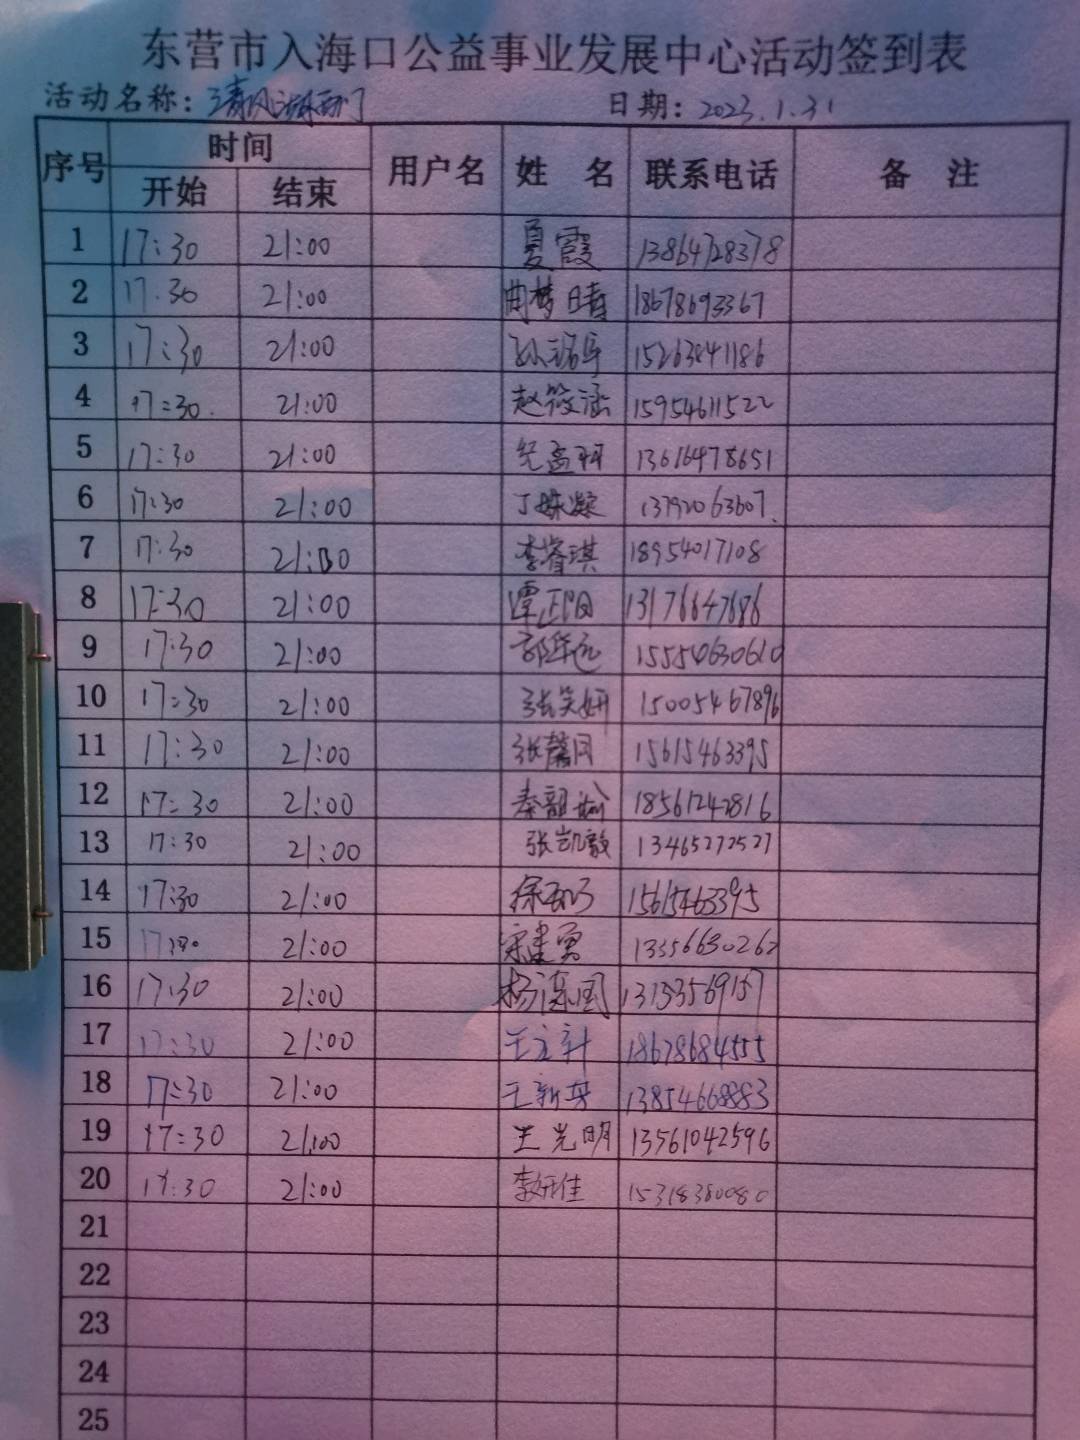 东营市入海口公益事业发展中心活动签到表
活动名称：清风湖西门 日期：2023.1.31
序号 时间 用户名 姓 名 联系电话 备 注
开始 结束
1 17:30 21:00 夏霞 13864728378
2 17:30 21:00 曲梦晴 18678693367
3 17:30 21:00 15263041186
4 17:30 21:00 赵筱涵 15954611522
5 17:30 21:00 纪孟轲 13616478651
6 17:30 21:00 丁姝凝 13792063607
7 17:30 21:00 李睿琪 18954017108
8 17:30 21:00 谭正阳 13176647686
9 17:30 21:00 郭华远 15554630610
10 17:30 21:00 张笑妍 15005467896
11 17:30 21:00 张馨月 15615463395
12 17:30 21:00 秦韶瑜 18561242816
13 17:30 21:00 张凯毅 13465272527
14 17:30 21:00 15615463395
15 17:30 21:00 宋建勇 13356630262
16 17:30 21:00 杨深国 13153569157
17 17:30 21:00 王立新 18678684555
18 17:30 21:00 王新英 13854668883
19 17:30 21:00 王光明 13561042596
20 17:30 21:00 李妍佳 15318380080
21
22
23
24
25